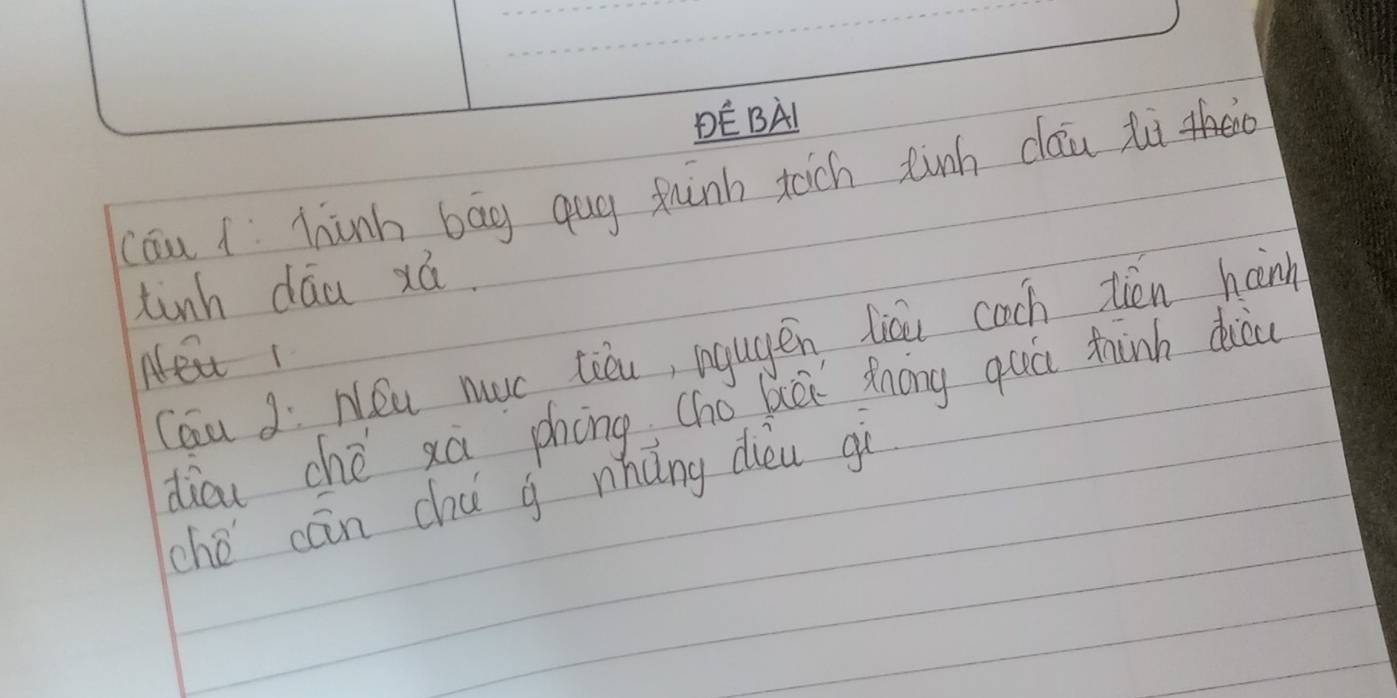 ĐỀ BÀI
Câu 1: Trình bày quy trình tách tinh dầu từ thảo
tinh dầu xả.
Nêu 1
Câu 2: Nêu mục tiêu, nguyên liệu cách tiến hành
điều chế xà phòng. Cho biết trong quá trình điều
chế cần chú ý những điều gì